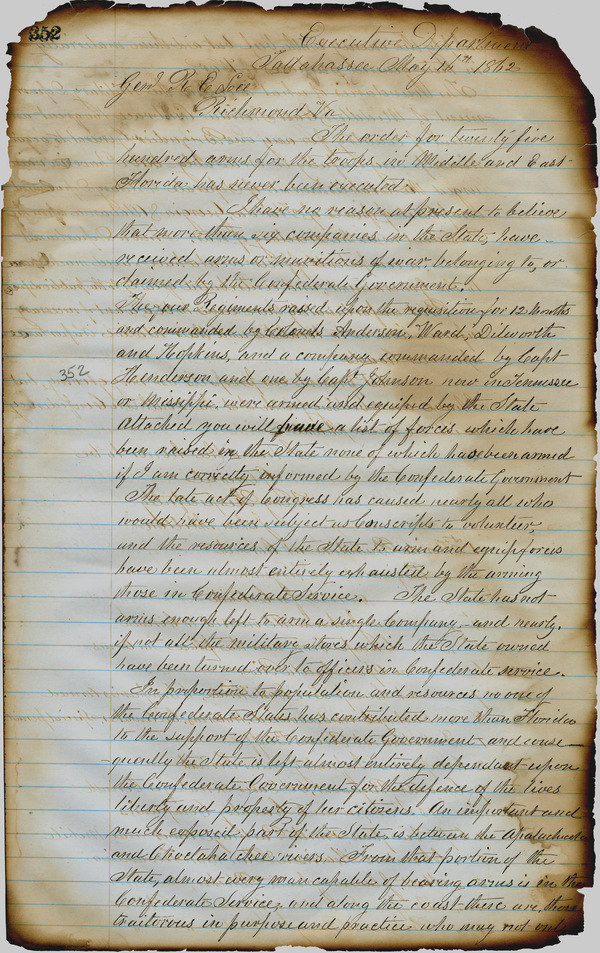 352
Executive Department
Tallahassee May 14th 1862
Genl R. E. Lee
Richmond Va
The order for twenty five
hundred arms for the troops in Middle and East
Florida has never been executed.
I have no reason at present to believe
that more than six companies in the State, have
received arms or munitions of war, belonging to, or
claimed by the Confederate Government.
The four Regiments raised upon the requisition for 12 Months
and commanded by Colonels Anderson, Ward, Dilworth
and Hopkins, and a company commanded by Capt
352
Henderson and one by Capt Johnson now in Tennessee
or Missippi were armed and equiped by the State
Attached you will a list of forces which have
been raised in the State none of which has been armed
if I am correctly informed by the Confederate Government
The late act of Congress has caused nearly all who
would have been subject as Conscripts to volunteer,
and the resources of the State to arm and equip forces
have been almost entirely exhausted by the arming
those in Confederate Service. The State has not
arms enough left to arm a single Company, and nearly,
if not all the military stores which the State owned
have been turned over to officers in Confederate service.
In proportion to population and resources no one of
the Confederate States has contributed more than Florida
to the support of the Confederate Government and conse-
-quently the State is left almost entirely dependant upon
the Confederate Government for the defence of the lives
liberty and property of her citizens. An important and
much exposed part of the State is between the Apalachicola
and Choctahatchee rivers. From that portion of the
State, almost every man capable of bearing arms is in the
Confederate Service, and along the coast there are, those
traitorous in purpose and practice who may not only